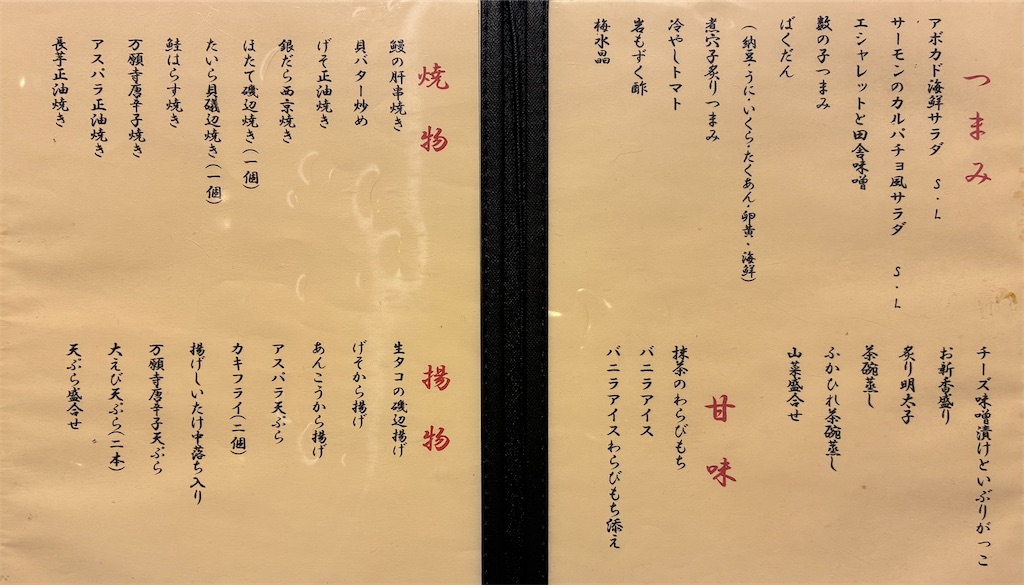 つまみ
アボカド海鮮サラダ S・L
サーモンのカルパチョ風サラダ S・L
エシャレットと田舎味噌
数の子つまみ
ばくだん
(納豆・うに・いくら・たくあん・卵黄・海鮮)
煮穴子炙りつまみ
冷やしトマト
岩もずく酢
梅水晶
チーズ味噌漬けといぶりがっこ
お新香盛り
炙り明太子
茶碗蒸し
ふかひれ茶碗蒸し
山菜盛合せ
甘味
抹茶のわらびもち
バニラアイス
バニラアイスわらびもち添え
焼物
鰻の肝串焼き
貝バター炒め
げそ正油焼き
銀だら西京焼き
ほたて磯辺焼き(一個)
たいら貝磯辺焼き(一個)
鮭はらす焼き
万願寺唐辛子焼き
アスパラ正油焼き
長芋正油焼き
揚物
生タコの磯辺揚げ
げそから揚げ
あんこうから揚げ
アスパラ天ぷら
カキフライ(二個)
揚げしいたけ中落ち入り
万願寺唐辛子天ぷら
大えび天ぷら(二本)
天ぷら盛合せ